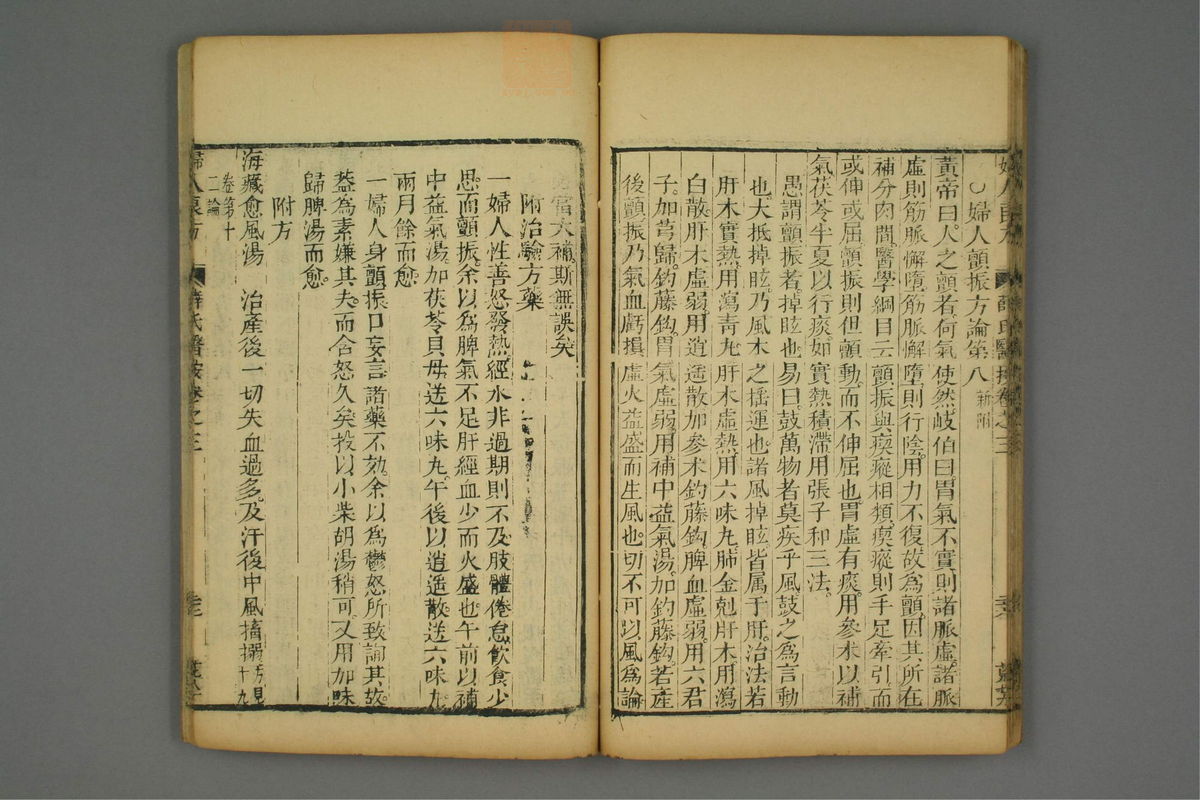 ○婦人顫振方論第八 新附
黃帝曰人之顫者何氣使然岐伯曰胃氣不實則諸脈虛諸脈
虛則筋脈懈墮筋脈懈墮則行陰用力不復故為顫因其所在
補分肉間醫學綱目云顫振與瘈瘲相類瘈瘲則手足牽引而
或伸或屈顫振則但顫動而不伸屈也胃虛有痰用參朮以補
氣茯苓半夏以行痰如實熱積滯用張子和三法
愚謂顫振者掉眩也易曰鼓萬物者莫疾乎風鼓之為言動
也大抵掉眩乃風木之搖運也諸風掉眩皆属于肝治法若
肝木實熱用瀉青丸肝木虛熱用六味丸肺金剋肝木用瀉
白散肝木虛弱用逍遥散加參朮釣藤鈎脾血虛弱用六君
子加芎歸釣藤鈎胃氣虛弱用補中益氣湯加釣藤鈎若產
後顫振乃氣血虧損虛火益盛而生風也切不可以風為論
大補斯無誤矣
附治驗方藥
一婦人性善怒發熱經水非過期則不及肢體倦怠飲食少
思而顫振余以為脾氣不足肝經血少而火盛也午前以補
中益氣湯加茯苓貝母送六味丸午後以逍遥散送六味丸
兩月餘而愈
一婦人身顫振口妄言諸藥不效余以為鬱怒所致詢其故
蓋為素嫌其夫而含怒久矣投以小柴胡湯稍可又用加味
歸脾湯而愈
附方
海藏愈風湯 治產後一切失血過多及汗後中風搐搦方見十九
卷第十
二論
婦人良方 薛氏醫按卷之三